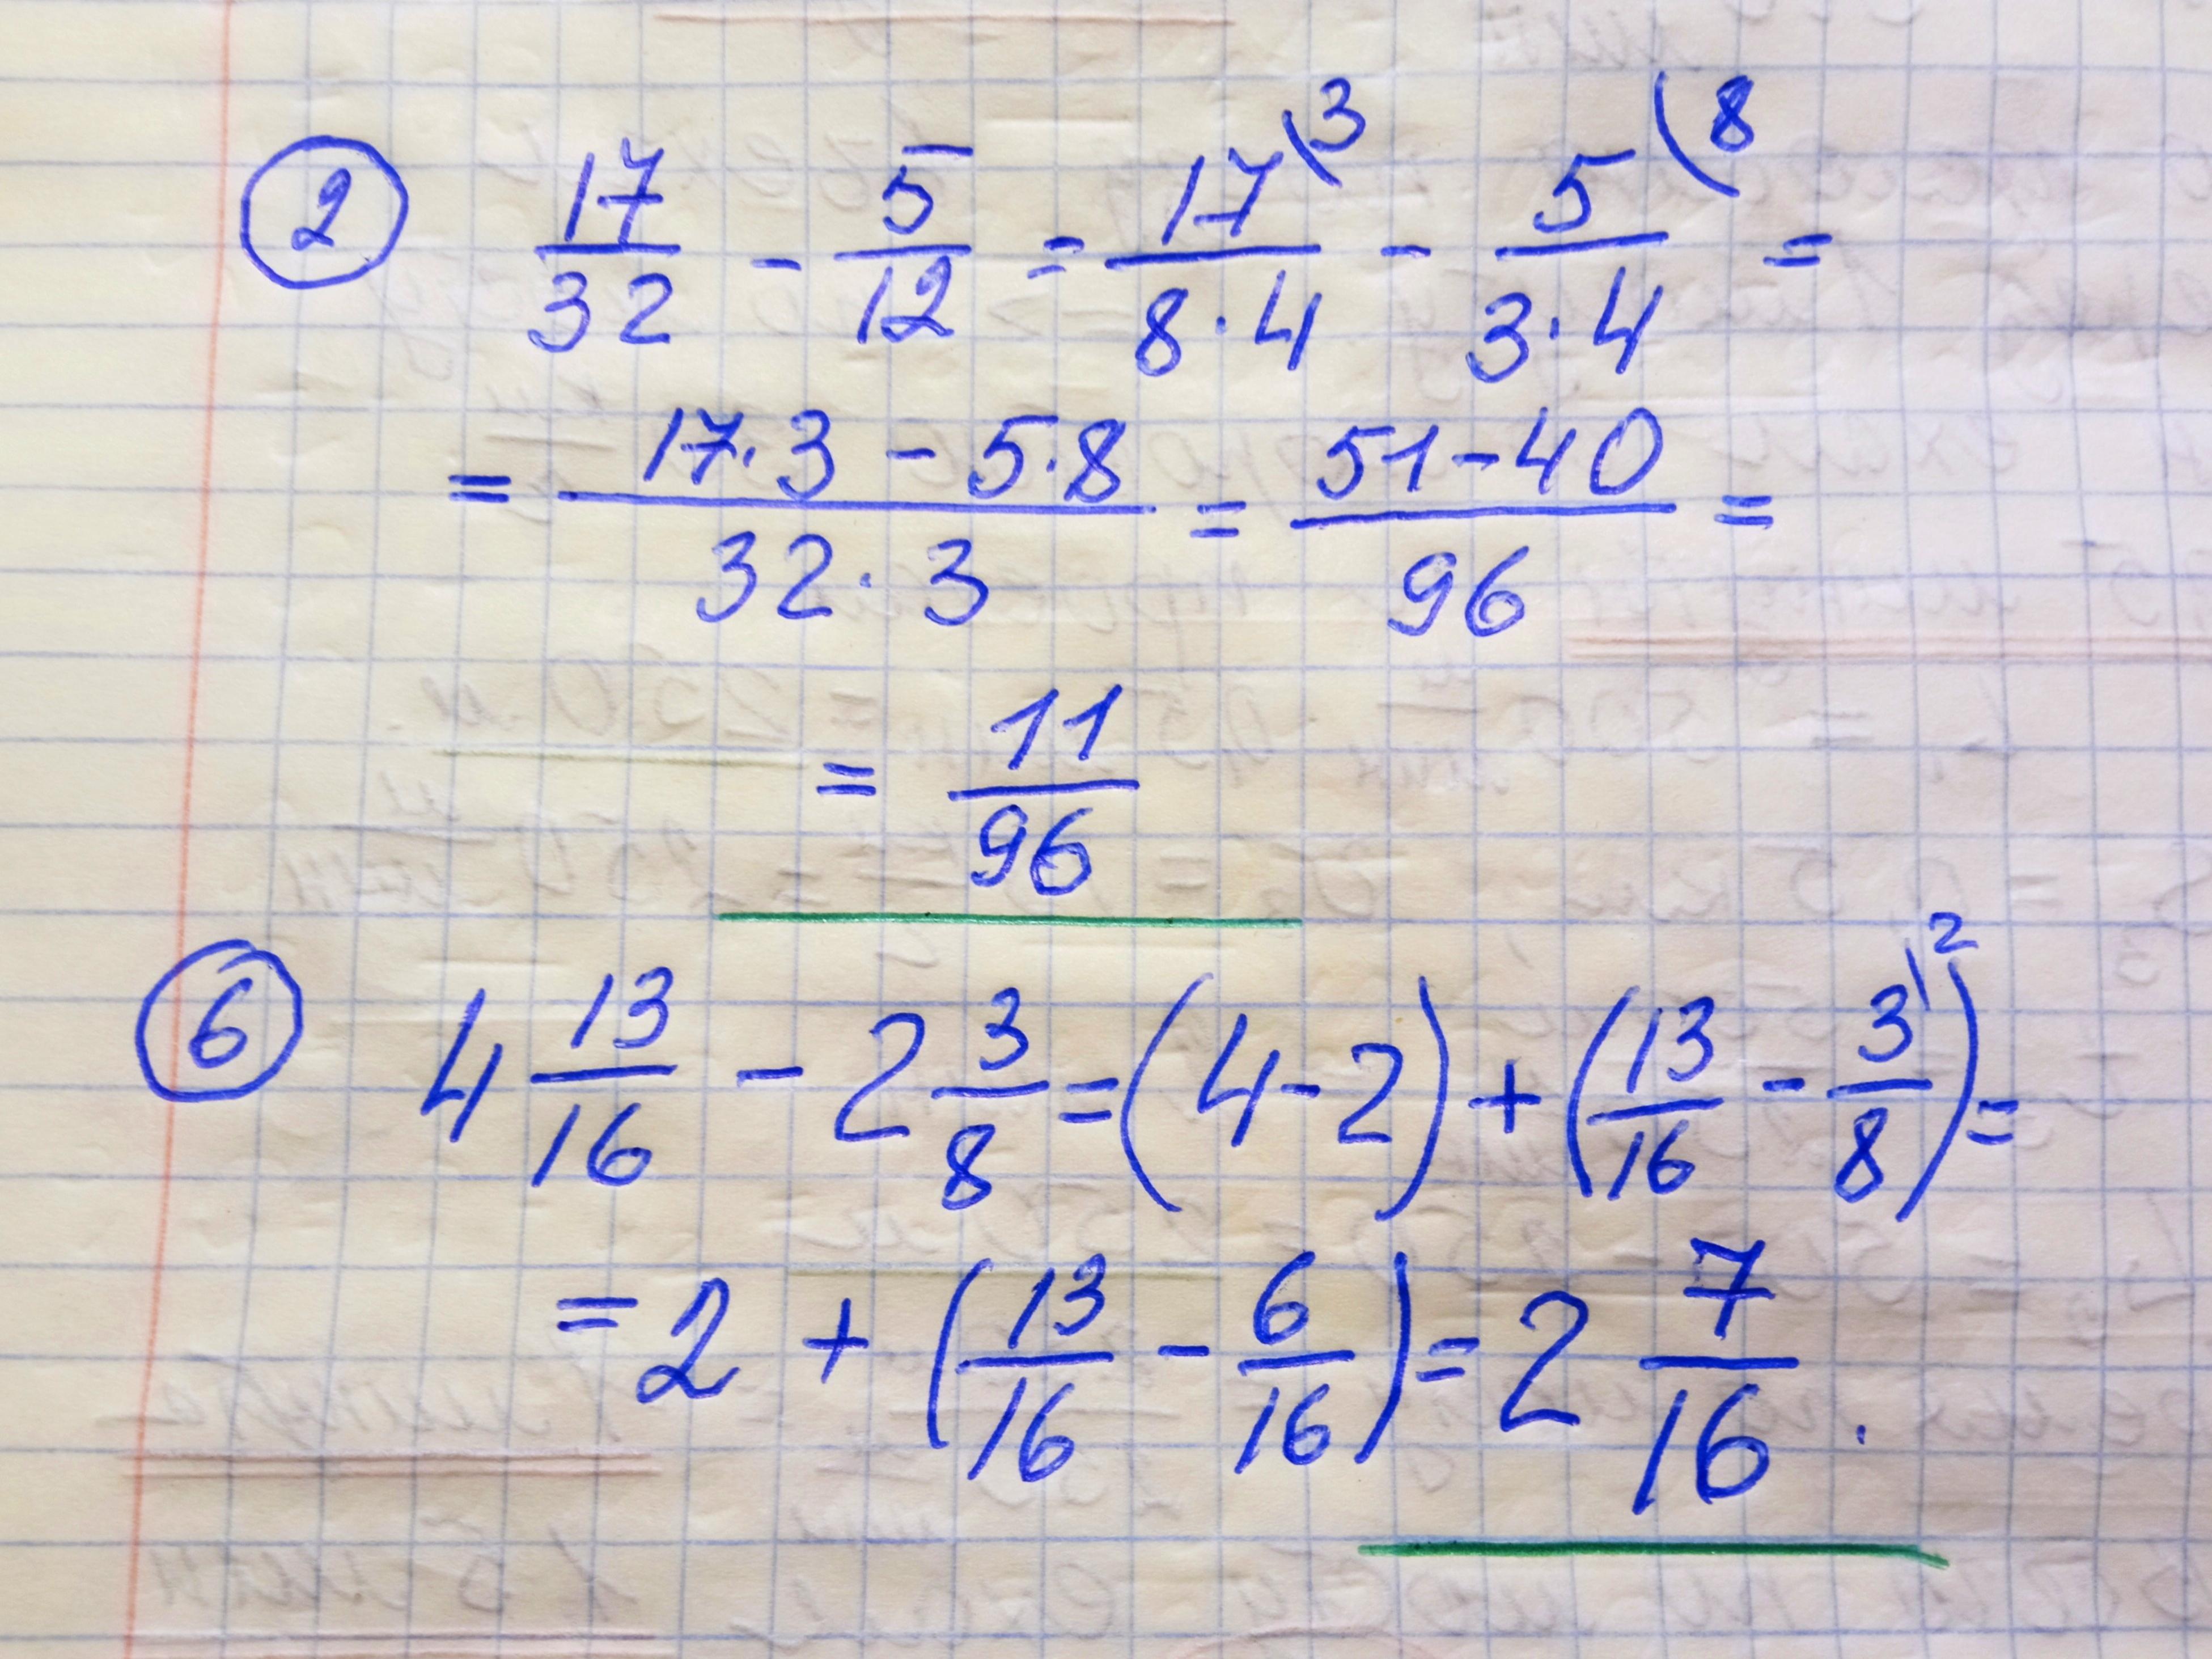 ② 17/32 - 5/12 = 17⁽³/8·4 - 5⁽⁸/3·4 =
= 17·3 - 5·8/32·3 = 51-40/96 =
= 11/96
⑥ 4 13/16 - 2 3/8 = (4-2) + (13/16 - 3\²/8) =
= 2 + (13/16 - 6/16) = 2 7/16.